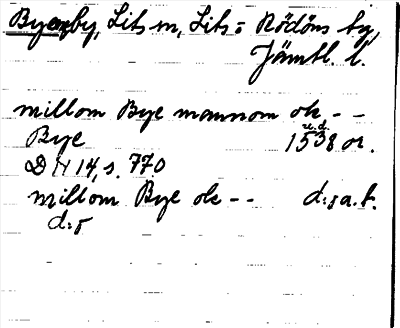 Byernby, Lits sn, Lits o Rödöns tg,
Jämtl. l.
millom Bye mannom ok - -
Bye u.d. 1538 or.
DN 14, s. 770
millom Bye ok - - d:s a. f.
d:o